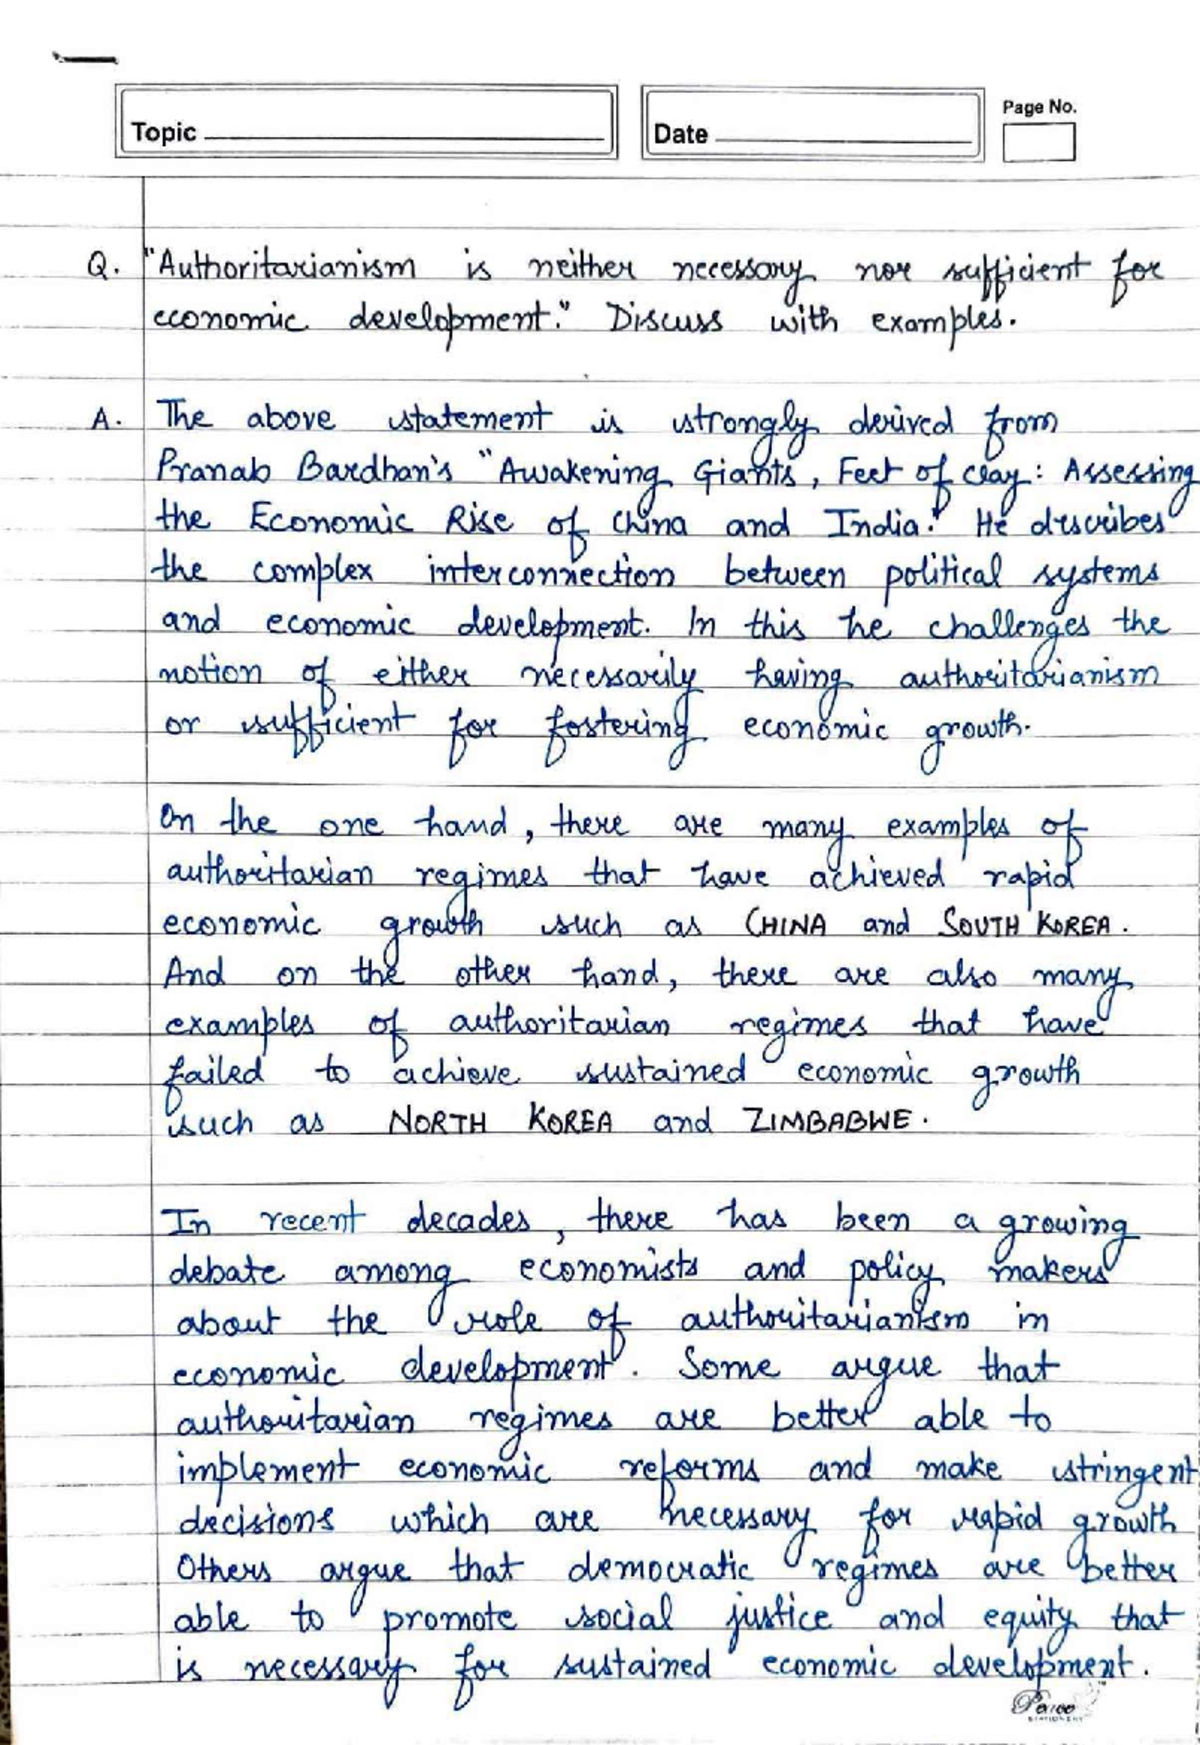 Topic
Date
Page No.
Q. "Authoritarianism is neither necessary nor sufficient for
economic development." Discuss with examples.
A. The above statement is strongly derived from
Pranab Bardhan's "Awakening Giants, Feet of clay: Assessing
the Economic Rise of China and India." He describes
the complex interconnection between political systems
and economic development. In this he challenges the
notion of either necessarily having authoritarianism
or sufficient for fostering economic growth.
On the one hand, there are many examples of
authoritarian regimes that have achieved rapid
economic growth such as CHINA and SOUTH KOREA.
And on the other hand, there are also many
examples of authoritarian regimes that have
failed to achieve sustained economic growth
such as NORTH KOREA and ZIMBABWE.
In recent decades, there has been a growing
debate among economists and policy makers
about the role of authoritarianism in
economic development. Some argue that
authoritarian regimes are better able to
implement economic reforms and make stringent
decisions which are necessary for rapid growth
Others argue that democratic regimes are better
able to promote social justice and equity that
is necessary for sustained economic development.
STATIONERY